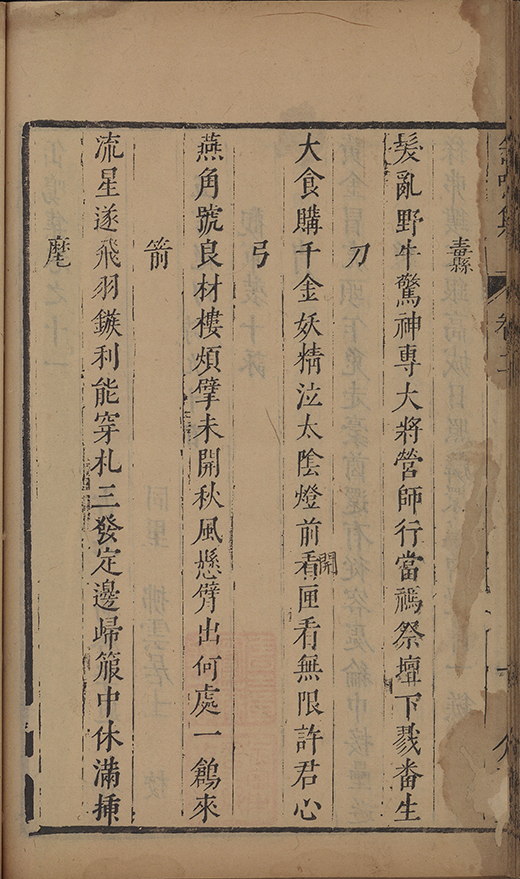 缶鳴集
卷十
纛
髮亂野牛驚神專大將營師行當禡祭壇下戮畨生
刀
大食購千金妖精泣太陰燈前看匣看無限許君心
開
弓
燕角號良材樓煩擘未開秋風懸臂出何處一鵰來
箭
流星遂飛羽鏃利能穿札三發定邊歸箙中休滿揷
麾